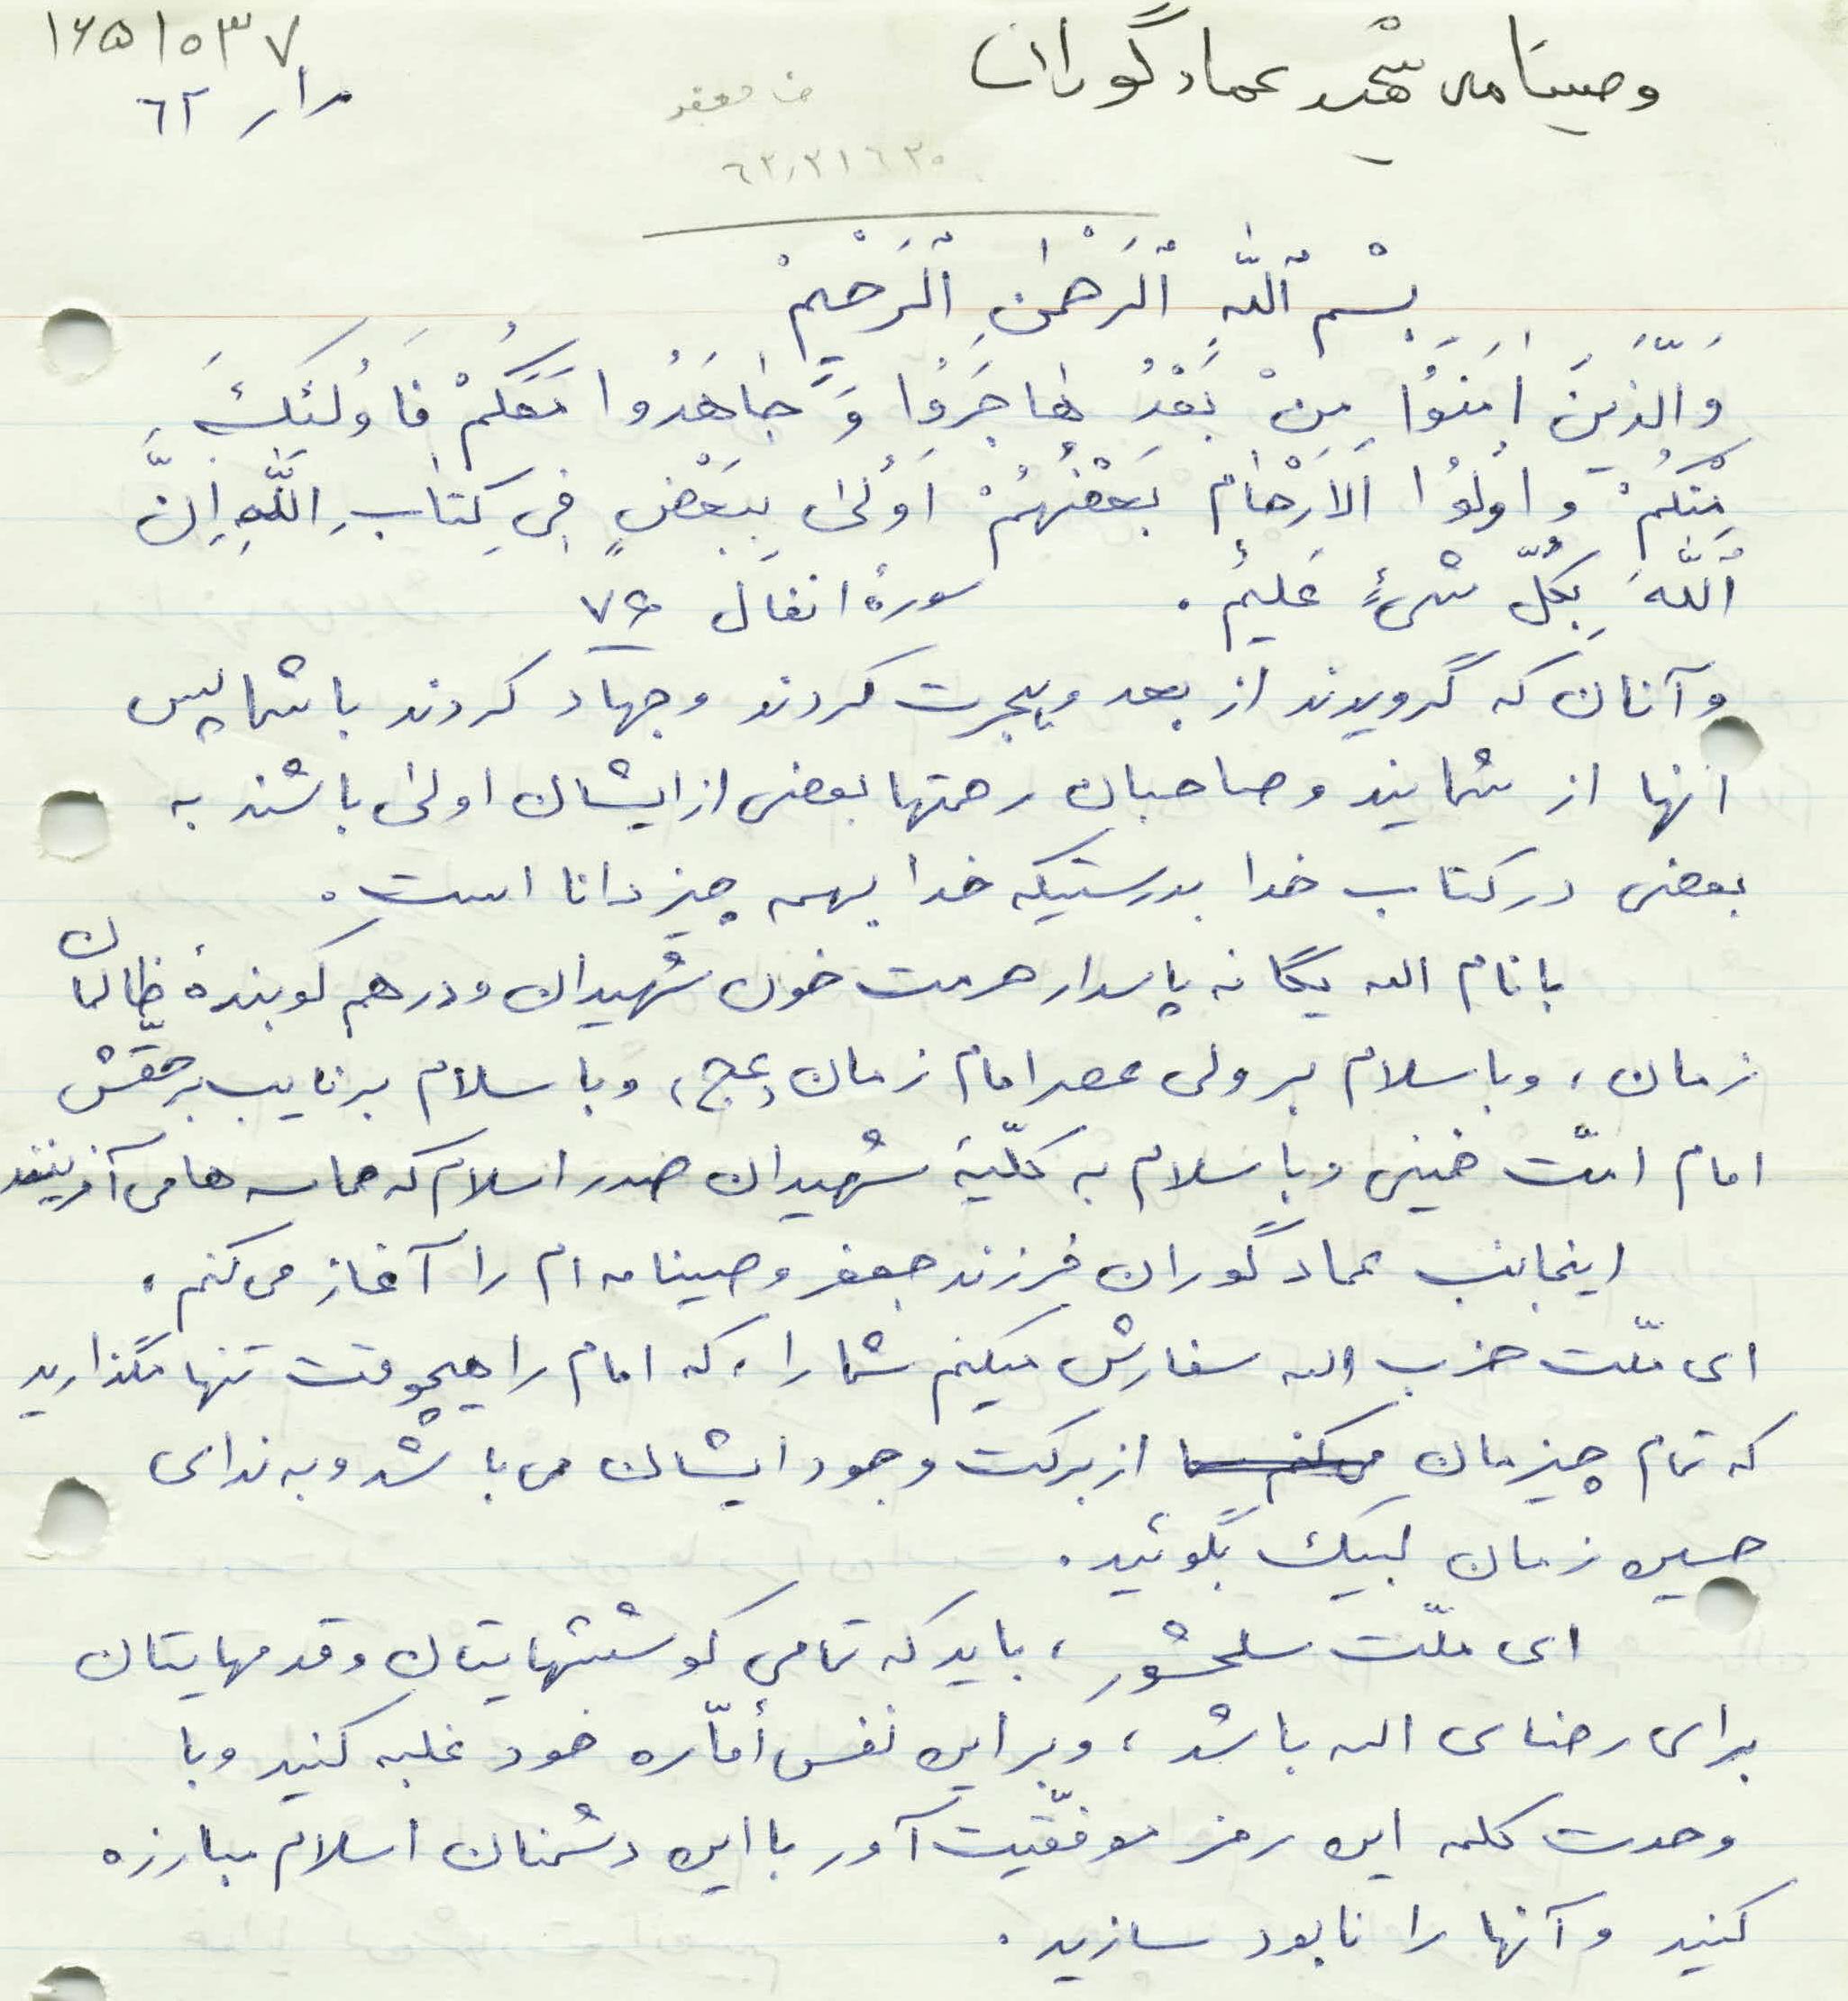 وصیتنامه شهید عماد گوران
۱۶۵۱۰۳۷
۶۲
بِسْمِ ٱللّٰهِ ٱلرَّحْمٰنِ ٱلرَّحیٖمْ
وَالَّذینَ اٰمَنَوُا مِنْ بَعْدُ هٰاجَرَوُا وَ جٰاهَدُوا مَعَكُمْ فَاوُلئِكَ
مِنْكُمْ وَ اوُلوُا الْاَرْحٰامِ بَعْضُهُمْ اَوْلیٰ بِبَعْضٍ فیِ كِتٰابِ اللّٰهِ اِنَّ
ٱللّٰهَ بِكُلِّ شَیءٍ عَلیمُ . سورهٔ انفال ۷۶
و آنان که گرویدند از بعد و هجرت کردند و جهاد کردند با شما پس
آنها از شمایند و صاحبان رحمتها بعضی از ایشان اولیٰ باشند به
بعضی در کتاب خدا بدرستیکه خدا بهمه چیز دانا است .
با نام الله یگانه پاسدار حرمت خون شهیدان و درهم کوبندهٔ ظالمان
زمان ، و با سلام بر ولی عصر امام زمان (عج) و با سلام بر نایب برحقّش
امام امّت خمینی و با سلام به کلّیهٔ شهیدان صدر اسلام که حماسه ها می آفرینند
اینجانب عماد گوران فرزند جعفر وصیتنامه ام را آغاز می کنم .
ای ملّت حزب الله سفارش میکنم شما را ، که امام را هیچوقت تنها مگذارید
که تمام چیزمان از برکت وجود ایشان می باشد و به ندای
حسین زمان لبیک بگوئید .
ای ملّت سلحشور ، باید که تمامی کوششهایتان و قدمهایتان
برای رضای الله باشد ، و بر این نفس أمّاره خود غلبه کنید و با
وحدت کلمه این رمز موفّقیت آور با این دشمنان اسلام مبارزه
کنید و آنها را نابود سازید .